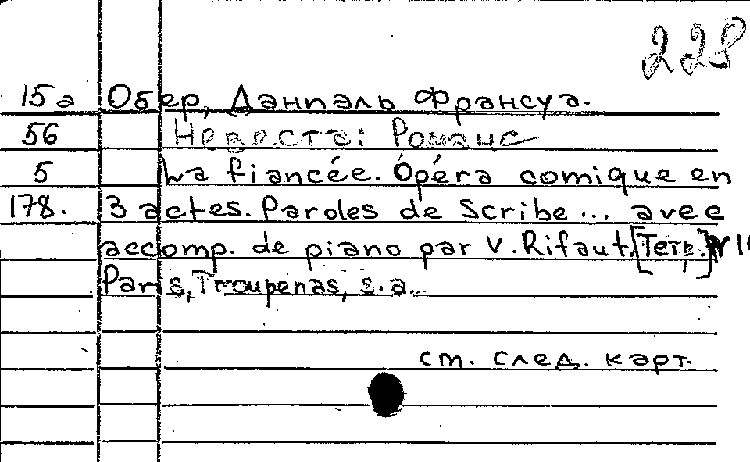 228
15а Обер, Даниэль Франсуа.
56 Невеста: Романс
5 La fiancée. Opéra comique en
178. 3 actes. Paroles de Scribe... avec
accomp. de piano par V. Rifaut. [Тетр.] N 11
Paris, Troupenas, s.a.
см. след. карт.